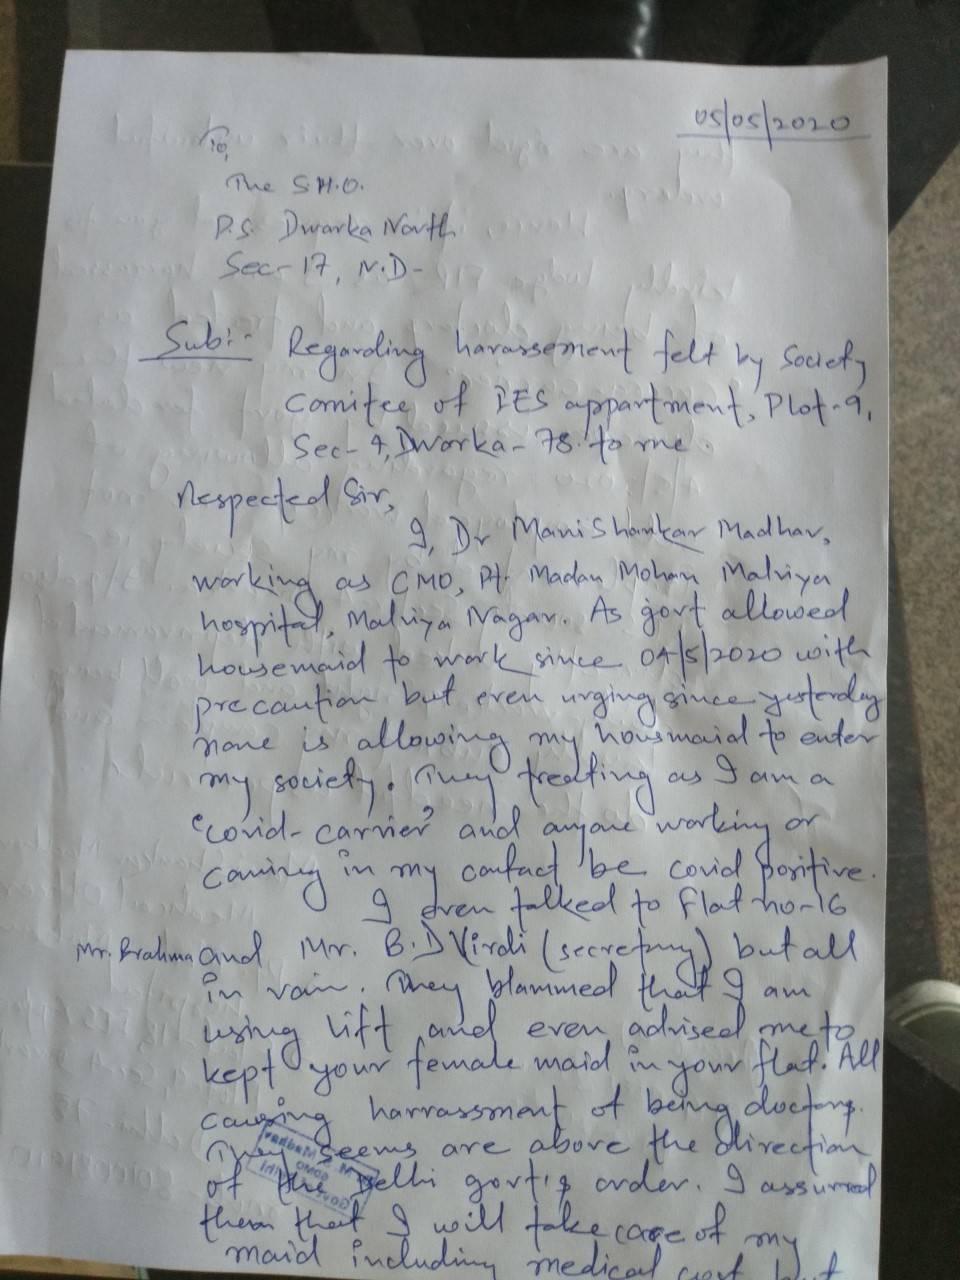 05/05/2020
To,
The S.H.O.
P.S. Dwarka North
Sec-17, N.D-
Sub:- Regarding harassement felt by Society
Comitee of IES appartment, Plot-9,
Sec-4, Dwarka-78. to me.
Respected Sir,
I, Dr Mani Shankar Madhav,
working as CMO, Pt. Madan Mohan Malviya
hospital, Malviya Nagar. As govt allowed
housemaid to work since 04/5/2020 with
precaution but even urging since yesterday
none is allowing my housmaid to enter
my society. They treating as I am a
'covid-carrier' and anyone working or
coming in my contact be covid positive.
I even talked to flat no-16
Mr. Brahma and Mr. B.D Virdi (secretary) but all
in vain. They blammed that I am
using lift and even advised me to
kept your female maid in your flat. All
causing harrassment of being doctors.
They seems are above the direction
of the Delhi govt's order. I assurred
them that I will take care of my
maid including medical cost but